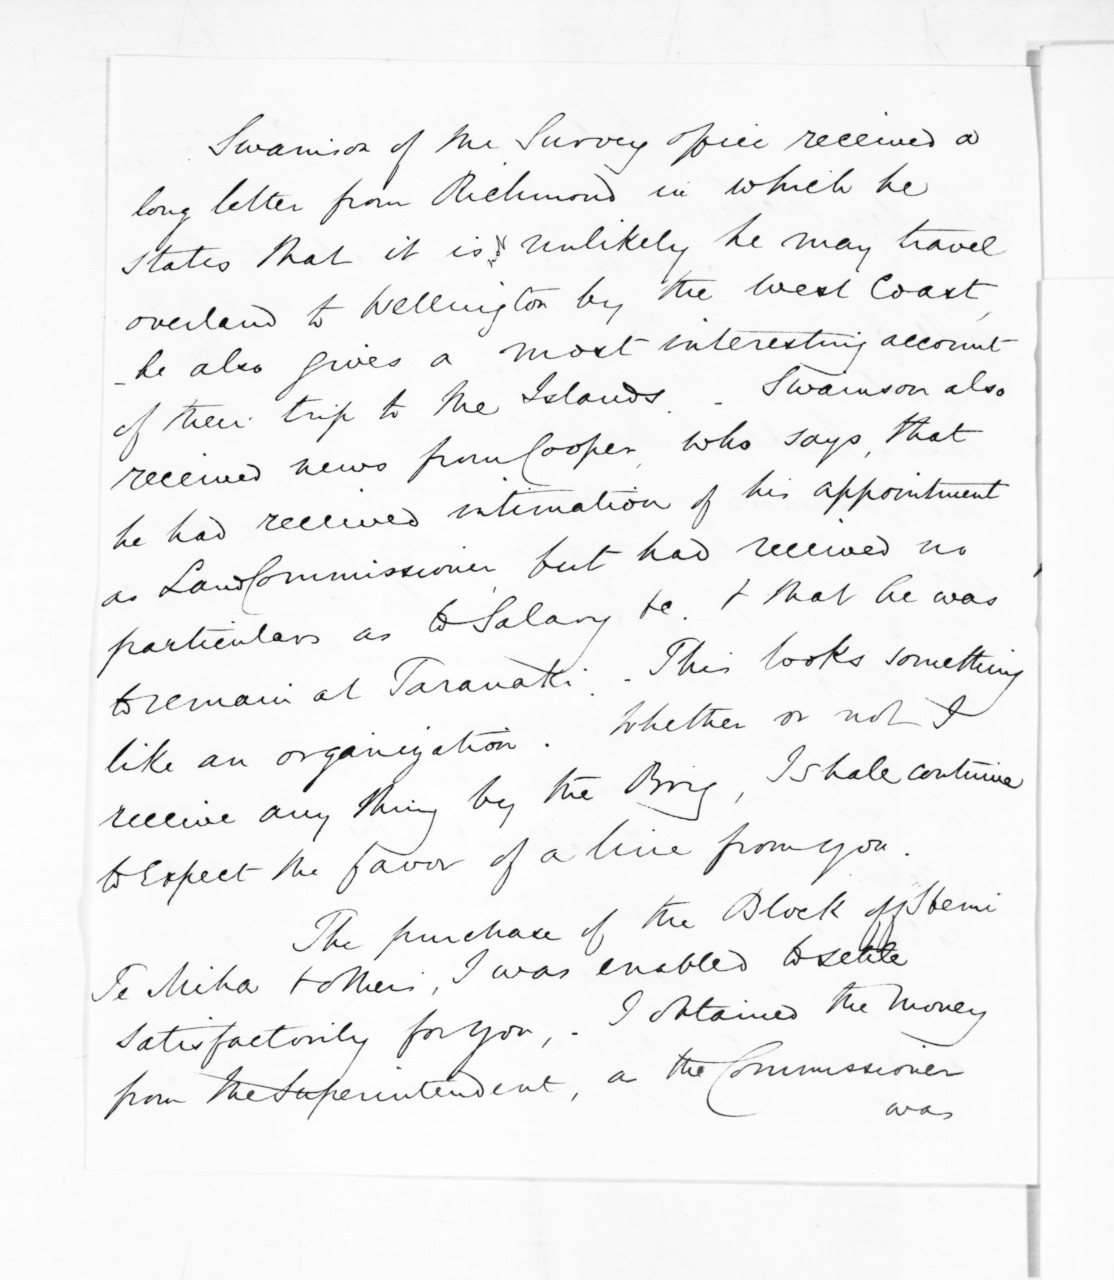 Swainson of the Survey office received a
long letter from Richmond in which he
states that it is not unlikely he may travel
overland to Wellington by the West Coast,
- he also gives a most interesting account
of their trip to the Islands. - Swainson also
received news from Cooper, who says, that
he had received intimation of his appointment
as Land Commissioner, but had received no
particulars as to Salary &c. & that he was
to remain at Taranaki. - This looks something
like an organization. Whether or not I
receive any thing by the Brig, I shall continue
to Expect the favor of a line from you.
The purchase of the Block off Hemi
Te Miha & others, I was enabled to settle
satisfactorily for you, - I obtained the money
from the Superintendent, as the Commissioner
was